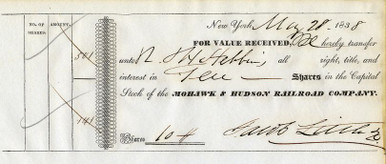 NO. OF SHARES. AMOUNT.
New York, May 28 1838
FOR VALUE RECEIVED, We hereby transfer
501 unto all right, title, and
interest in Ten Shares in the Capital
Stock of the MOHAWK & HUDSON RAILROAD COMPANY.
Shares 10 Jacob Little